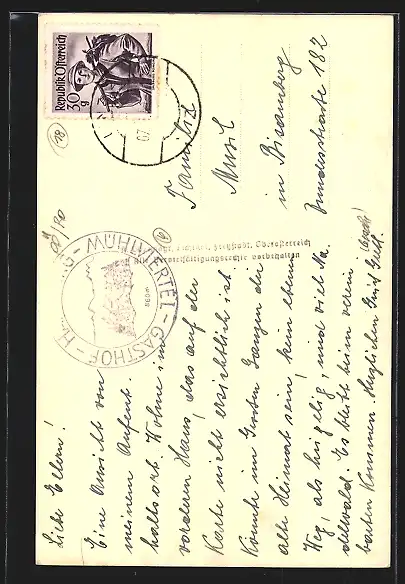 Republik Österreich
30
g
18
Familie
Musil
in Bisamberg
Bundesstraße 182
Freistadt, Oberösterreich
Alle Vervielfältigungsrechte vorbehalten
MÜHLVIERTEL - GASTHOF
Liebe Eltern!
Eine Ansicht von
meinem Aufent-
haltsort. Wohne im
vorderen Haus, das auf der
Karte nicht ersichtlich ist.
Könnte im Großen Ganzen die
alte Heimat sein, kein ebener
Weg, als hüglig, und viel Na-
delwald. Es bleibt beim verein-
barten Kommen. Herzlichen Gruß